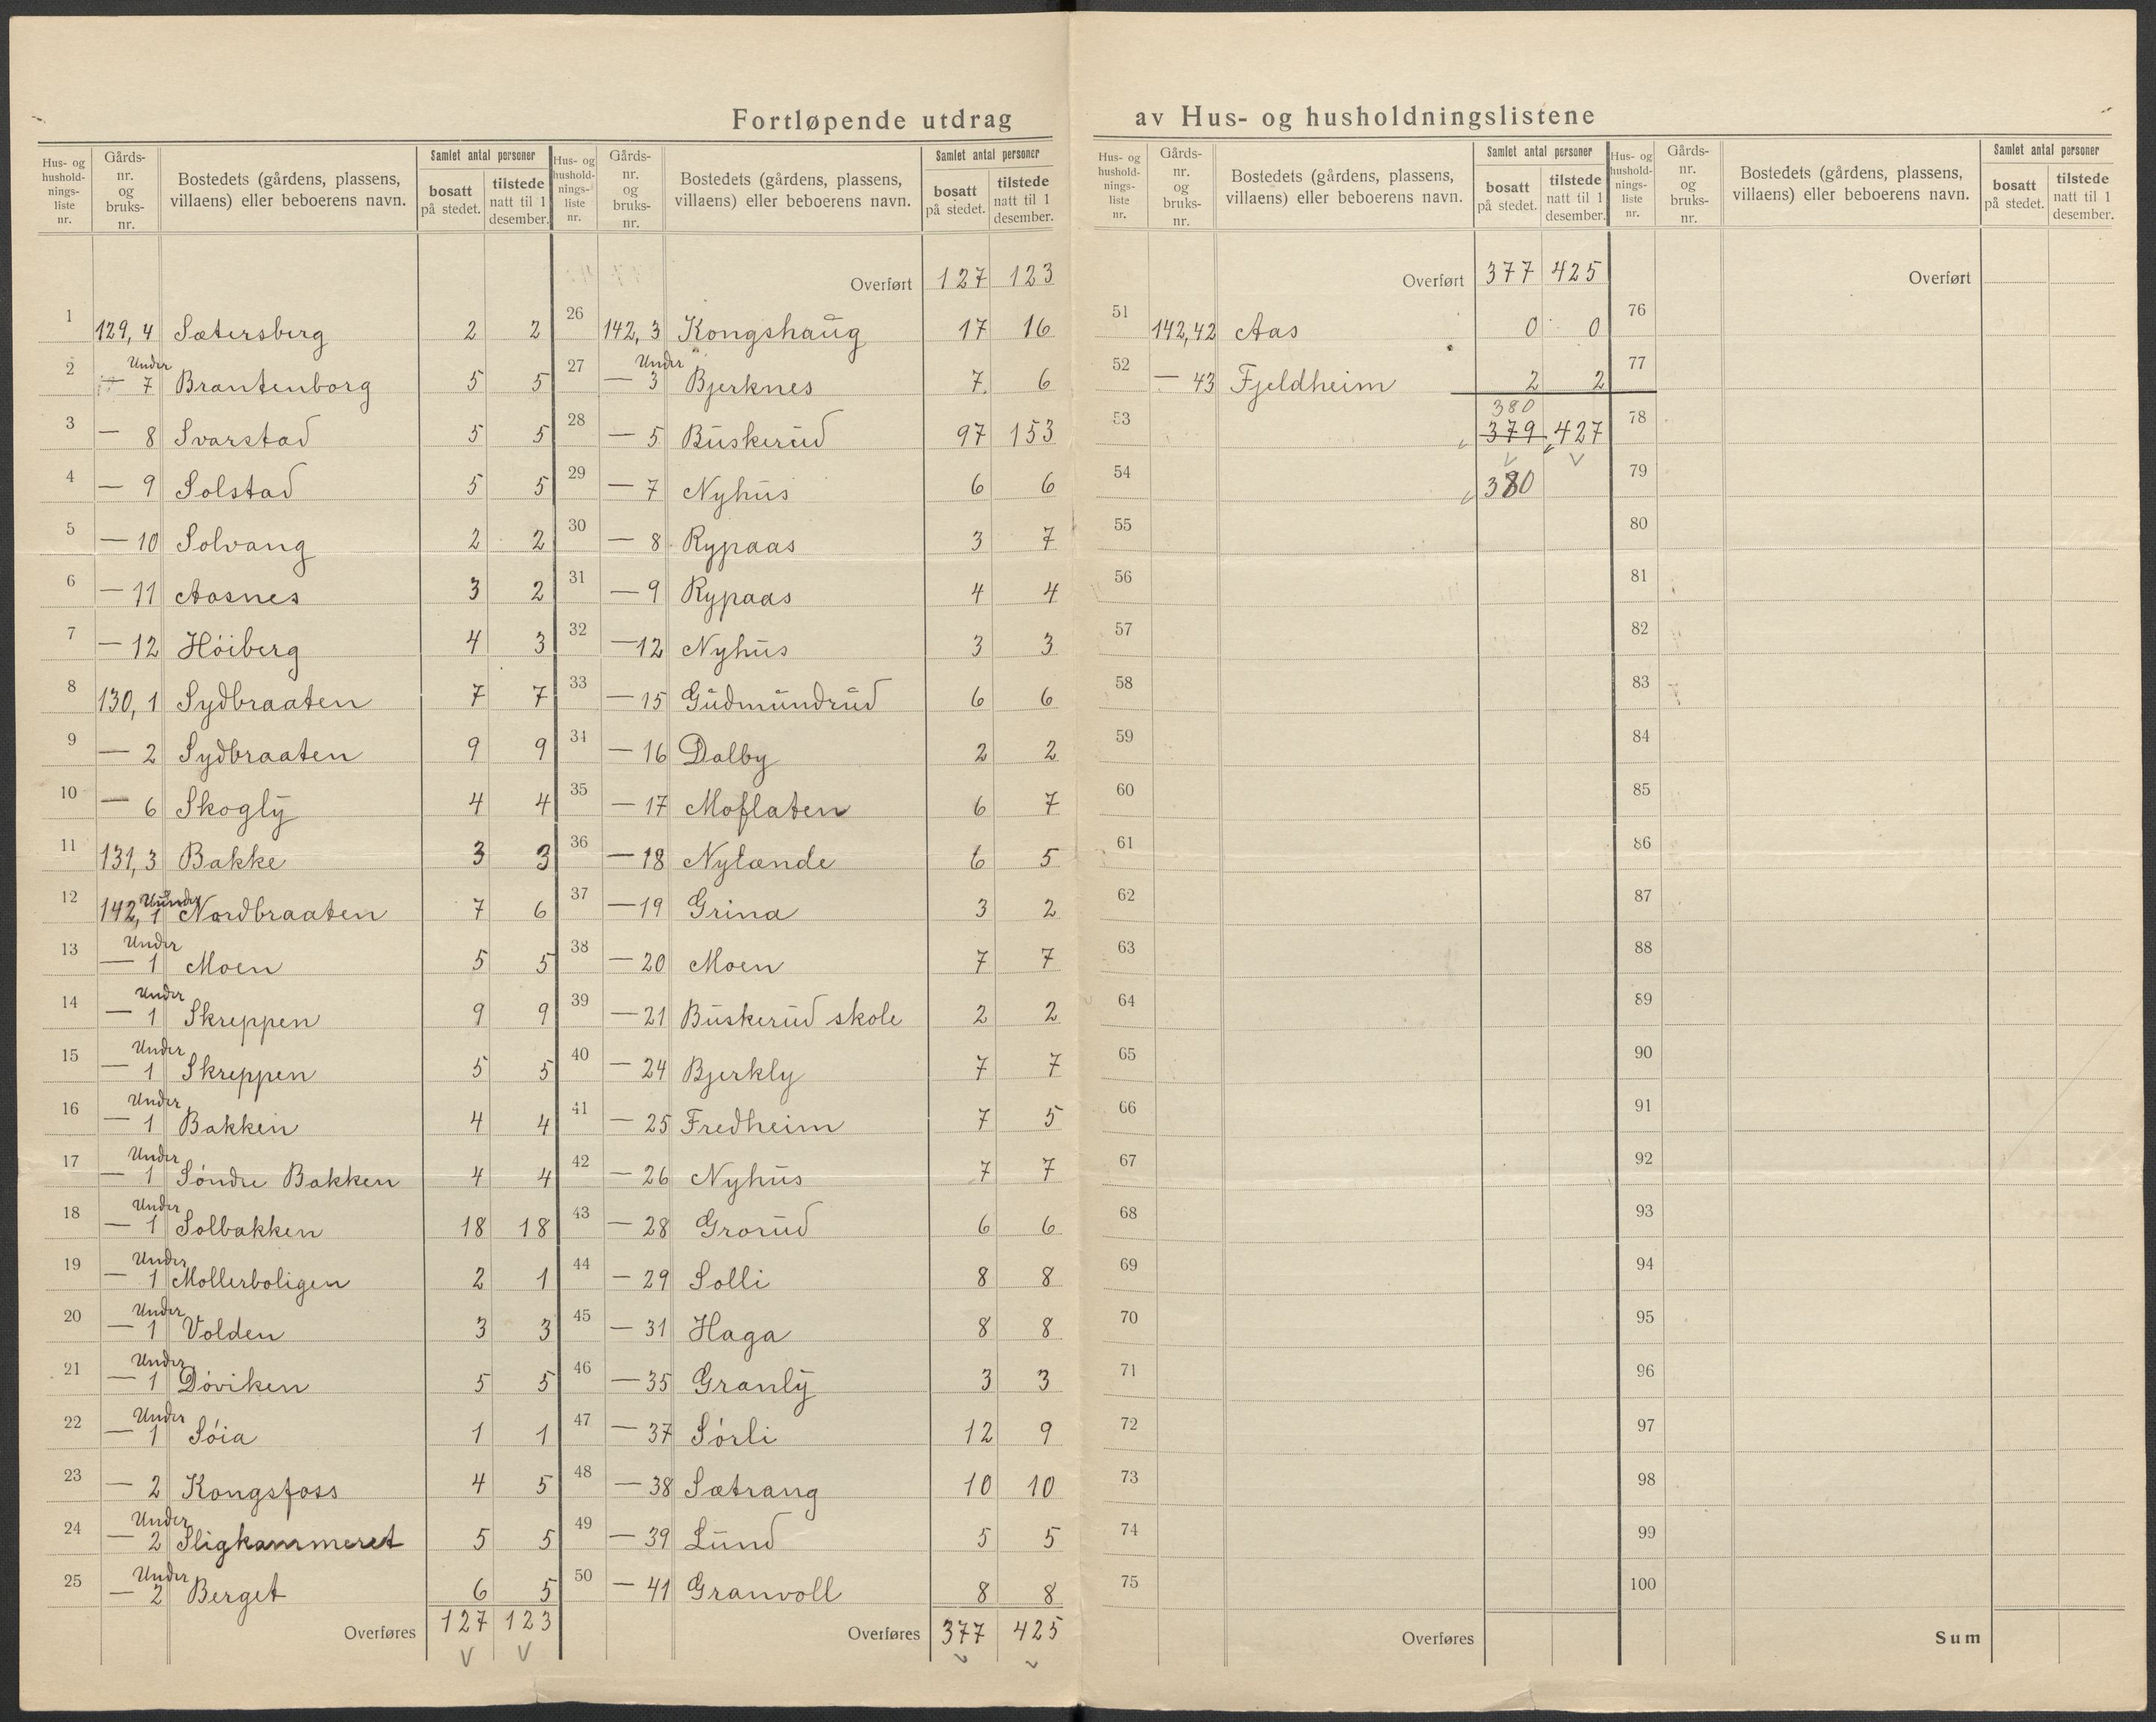 Fortløpende utdrag av Hus- og husholdningslistene
Hus- og husholdningsliste nr. | Gårdsnr. og bruksnr. | Bostedets (gårdens, plassens, villaens) eller beboerens navn. | Samlet antal personer bosatt på stedet. | tilstede natt til 1 desember.
1 129, 4 Sætersberg 2 2
2 Under — 7 Brantenborg 5 5
3 — 8 Svarstad 5 5
4 — 9 Solstad 5 5
5 — 10 Solvang 2 2
6 — 11 Aasnes 3 2
7 — 12 Høiberg 4 3
8 130, 1 Sydbraaten 7 7
9 — 2 Sydbraaten 9 9
10 — 6 Skogly 4 4
11 131, 3 Bakke 3 3
12 142, Under 1 Nordbraaten 7 6
13 Under — 1 Moen 5 5
14 Under — 1 Skreppen 9 9
15 Under — 1 Skreppen 5 5
16 Under — 1 Bakken 4 4
17 Under — 1 Søndre Bakken 4 4
18 Under — 1 Solbakken 18 18
19 Under — 1 Møllerboligen 2 1
20 Under — 1 Volden 3 3
21 Under — 1 Døviken 5 5
22 Under — 1 Søia 1 1
23 — 2 Kongsfoss 4 5
24 Under — 2 Sligkammeret 5 5
25 Under — 2 Berget 6 5
Overføres 127 123
Hus- og husholdningsliste nr. | Gårdsnr. og bruksnr. | Bostedets (gårdens, plassens, villaens) eller beboerens navn. | Samlet antal personer bosatt på stedet. | tilstede natt til 1 desember.
Overført 127 123
26 142, 3 Kongshaug 17 16
27 Under — 3 Bjerknes 7 6
28 — 5 Buskerud 97 153
29 — 7 Nyhus 6 6
30 — 8 Rypaas 3 7
31 — 9 Rypaas 4 4
32 — 12 Nyhus 3 3
33 — 15 Gudmundrud 6 6
34 — 16 Dalby 2 2
35 — 17 Moflaten 6 7
36 — 18 Nylænde 6 5
37 — 19 Grina 3 2
38 — 20 Moen 7 7
39 — 21 Buskerud skole 2 2
40 — 24 Bjerkly 7 7
41 — 25 Fredheim 7 5
42 — 26 Nyhus 7 7
43 — 28 Grorud 6 6
44 — 29 Solli 8 8
45 — 31 Haga 8 8
46 — 35 Granly 3 3
47 — 37 Sørli 12 9
48 — 38 Sætrang 10 10
49 — 39 Lund 5 5
50 — 41 Granvoll 8 8
Overføres 377 425
Hus- og husholdningsliste nr. | Gårdsnr. og bruksnr. | Bostedets (gårdens, plassens, villaens) eller beboerens navn. | Samlet antal personer bosatt på stedet. | tilstede natt til 1 desember.
Overført 377 425
51 142,42 Aas 0 0
52 — 43 Fjeldheim 2 2
380
53 379 427
54 380
55
56
57
58
59
60
61
62
63
64
65
66
67
68
69
70
71
72
73
74
75
Overføres
Hus- og husholdningsliste nr. | Gårdsnr. og bruksnr. | Bostedets (gårdens, plassens, villaens) eller beboerens navn. | Samlet antal personer bosatt på stedet. | tilstede natt til 1 desember.
Overført
76
77
78
79
80
81
82
83
84
85
86
87
88
89
90
91
92
93
94
95
96
97
98
99
100
Sum